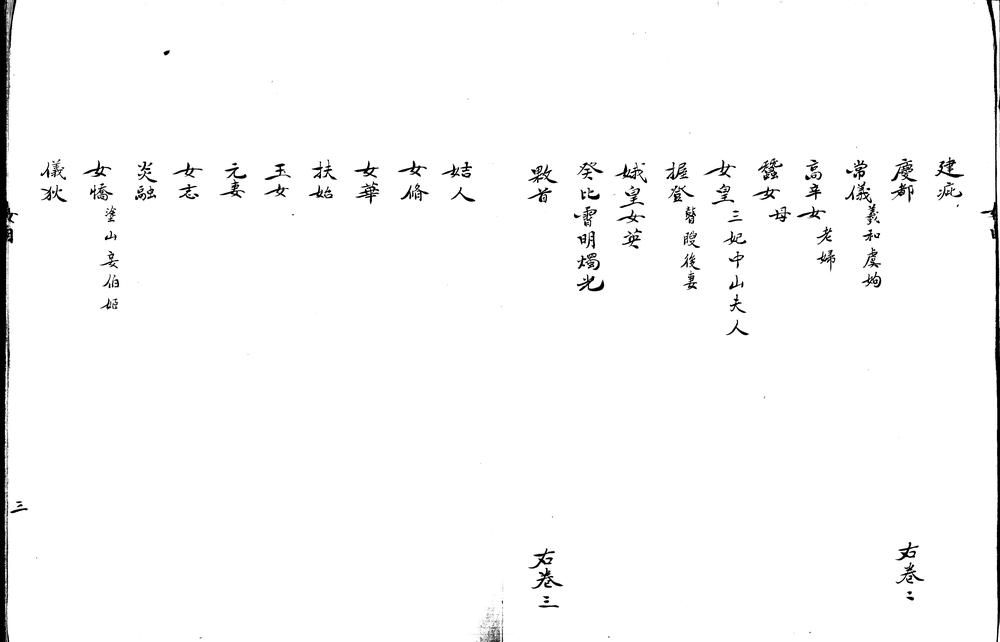 建疵
慶都 右卷二
常儀 羲和虞姁
高辛女 老婦
蠶女 母
女皇 三妃中山夫人
握登 瞽瞍後妻
娥皇女英
癸比霄明燭光
敤首 右卷三
姞人
女脩
女華
扶始
玉女
元妻
女志
炎融
女憍 塗山妾伯姬
儀狄
三